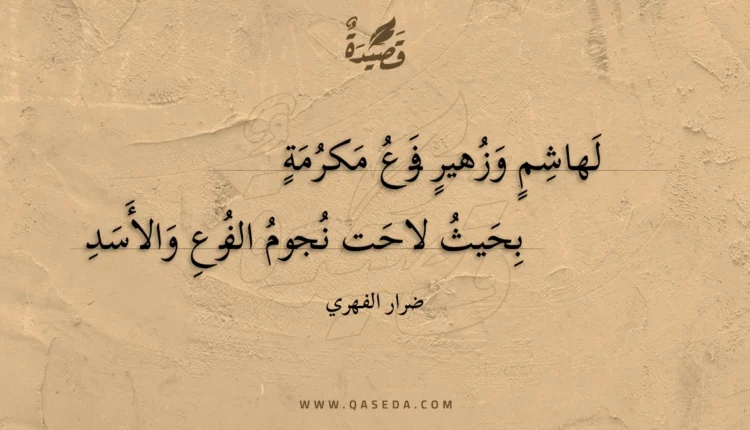 قَصِيدَةٌ
لَهاشِمٍ وَزُهيرٍ فَرعُ مَكرُمَةٍ
بِحَيثُ لاحَت نُجومُ الفُرعِ وَالأَسَدِ
ضرار الفهري
WWW.QASEDA.COM